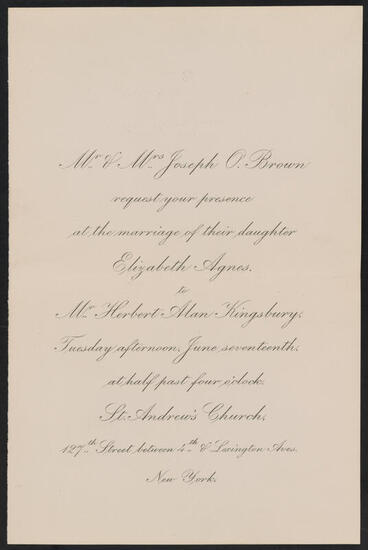 Mr. & Mrs. Joseph O. Brown
request your presence
at the marriage of their daughter
Elizabeth Agnes.
to
Mr. Herbert Alan Kingsbury,
Tuesday afternoon, June seventeenth,
at half past four o'clock.
St. Andrew's Church,
127th Street between 4th & Lexington Aves.
New York.